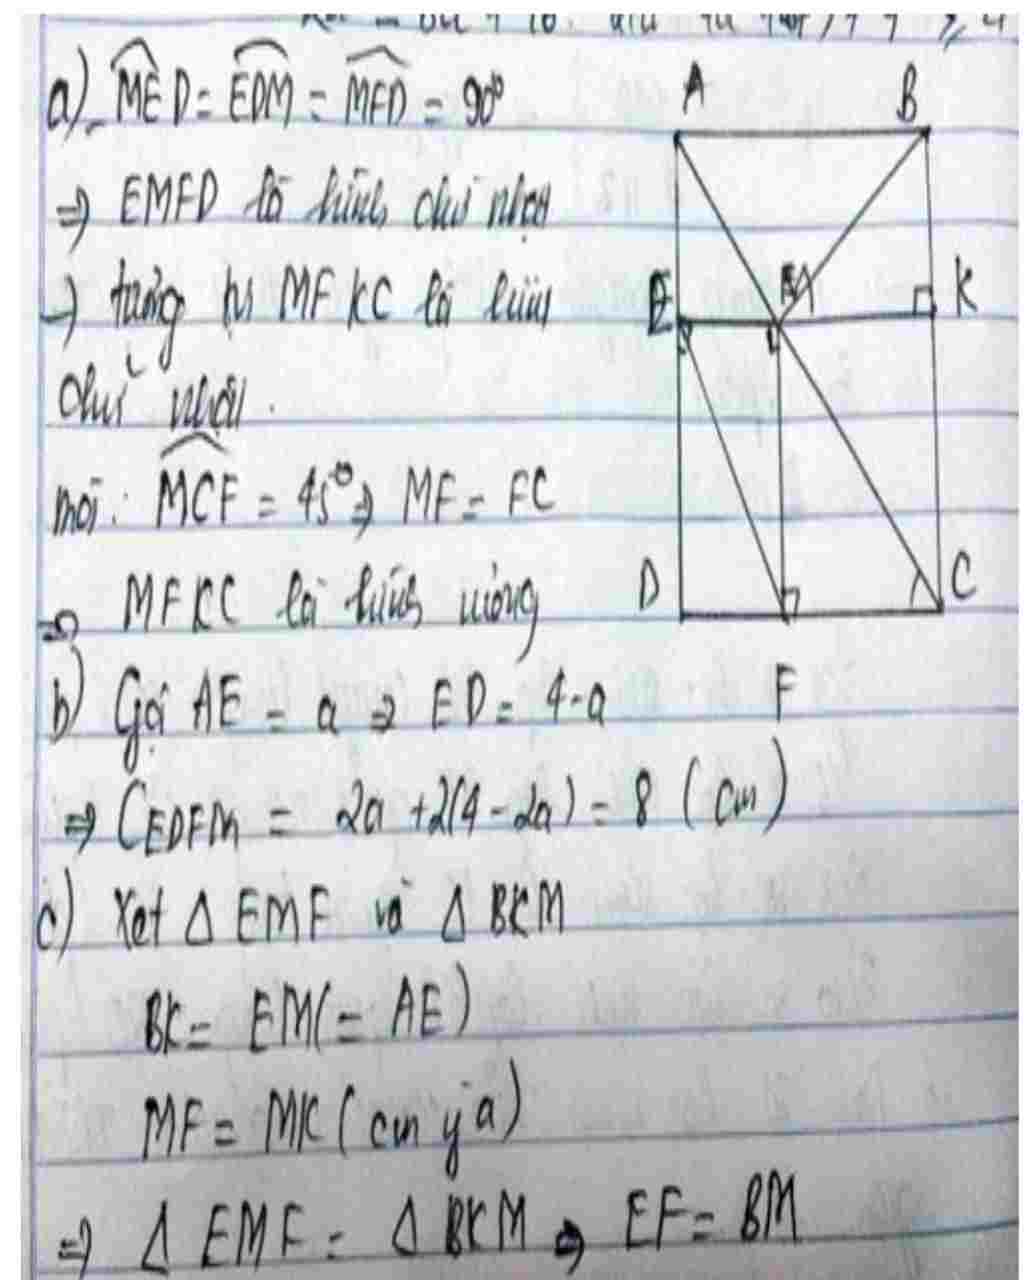 a) MED = EDM = MFD = 90°
⇒ EMFD là hình chữ nhật
→ tương tự MFKC là hình
chữ nhật.
mỗi: MCF = 45° ⇒ MF = FC
⇒ MFKC là hình vuông
b) Gọi AE = a ⇒ ED = 4-a
⇒ CEDFM = 2a + 2(4-2a) = 8 (cm)
c) Xét Δ EMF và Δ BKM
BK = EM (= AE)
MF = MK (cm ý a)
⇒ Δ EMF = Δ BKM ⇒ EF = BM
A B
E M K
D C
F